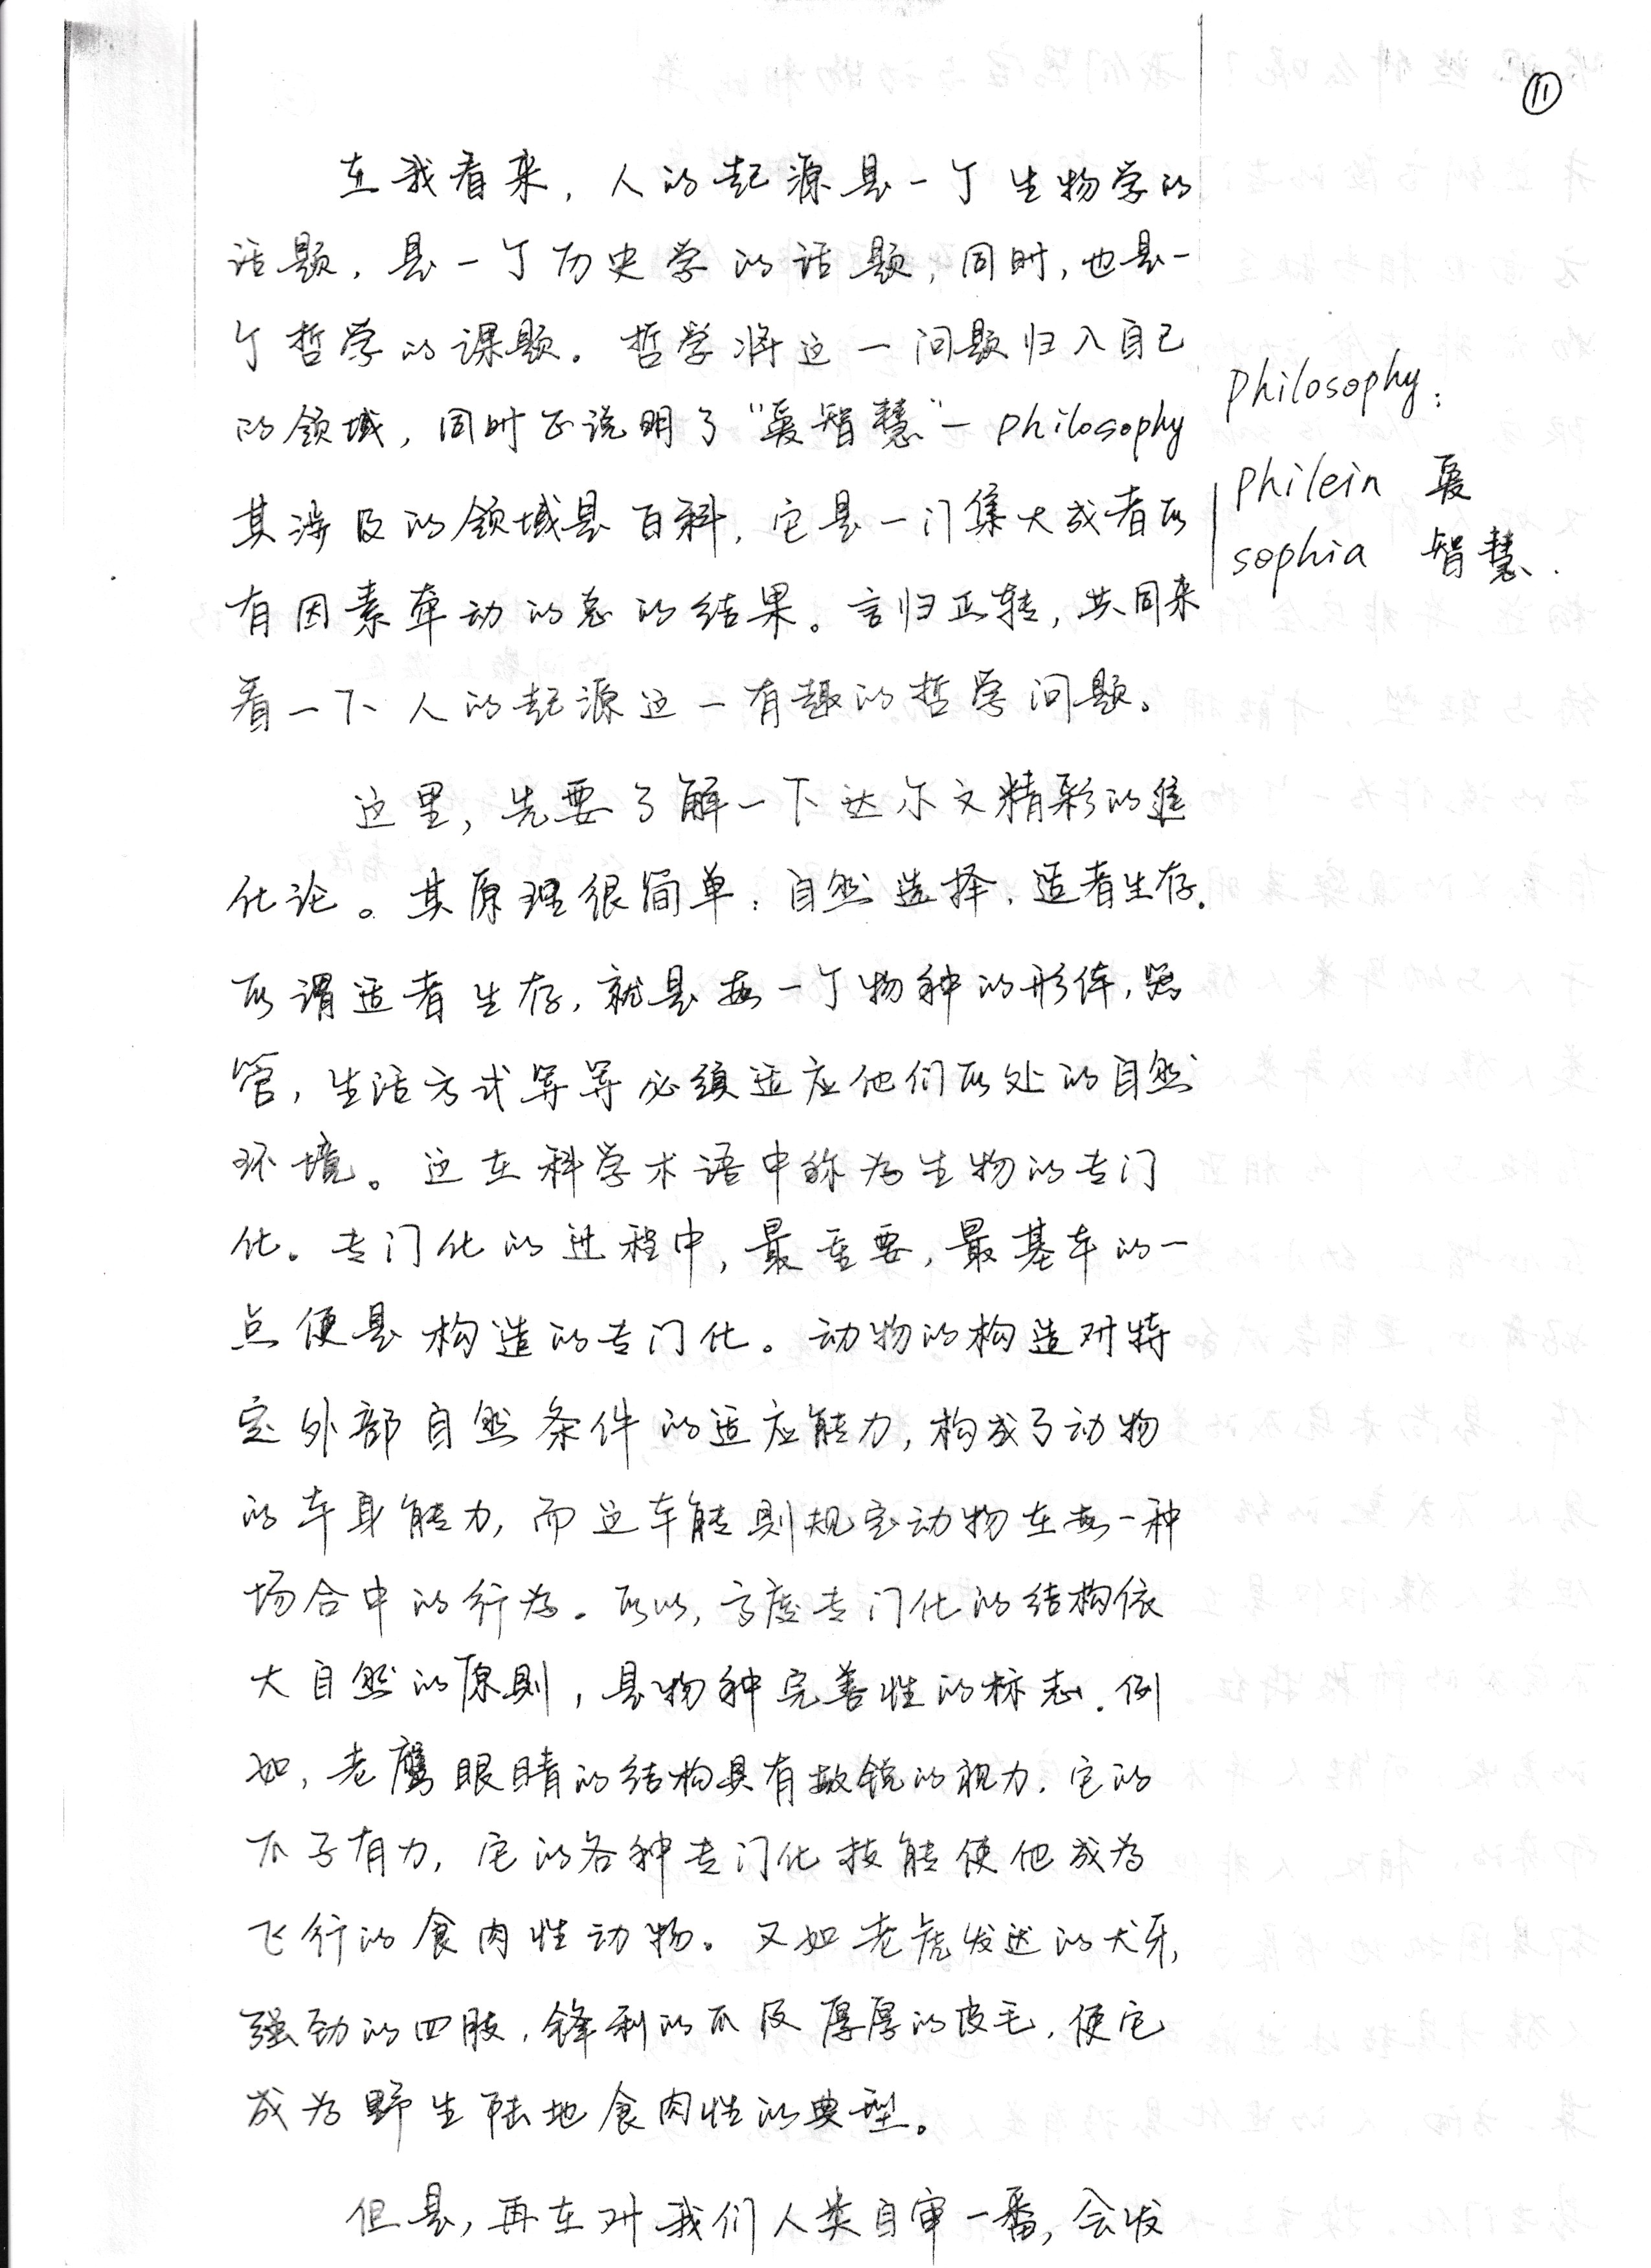 ⑪
在我看来，人的起源是一个生物学的
话题，是一个历史学的话题，同时，也是一
个哲学的课题。哲学将这一问题归入自己
的领域，同时正说明了“爱智慧”— philosophy
其涉及的领域是百科，它是一门集大成者所
有因素牵动的总的结果。言归正转，共同来
看一下人的起源这一有趣的哲学问题。
philosophy:
philein 爱
sophia 智慧.
这里，先要了解一下达尔文精彩的进
化论。其原理很简单：自然选择，适者生存.
所谓适者生存，就是每一个物种的形体，器
管，生活方式等等必须适应他们所处的自然
环境。这在科学术语中称为生物的专门
化。专门化的进程中，最重要，最基本的一
点便是构造的专门化。动物的构造对特
定外部自然条件的适应能力，构成了动物
的本身能力，而这本能则规定动物在每一种
场合中的行为。所以，高度专门化的结构依
大自然的原则，是物种完善性的标志．例
如，老鹰眼睛的结构具有敏锐的视力．它的
爪子有力，它的各种专门化技能使他成为
飞行的食肉性动物。又如老虎发达的犬牙，
强劲的四肢，锋利的爪及厚厚的皮毛，使它
成为野生陆地食肉性的典型。
但是，再在对我们人类自审一番，会发